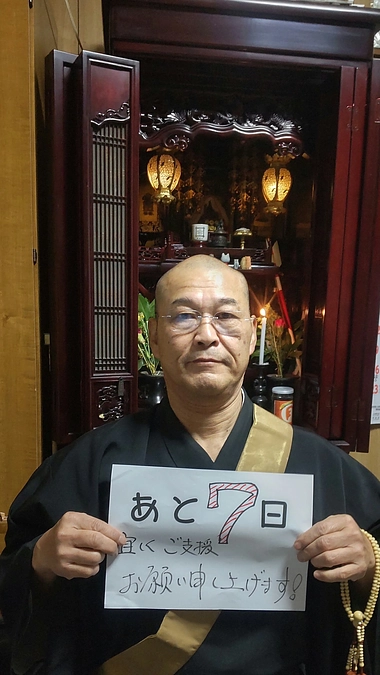 あと7日
宜しくご支援
お願い申し上げます!